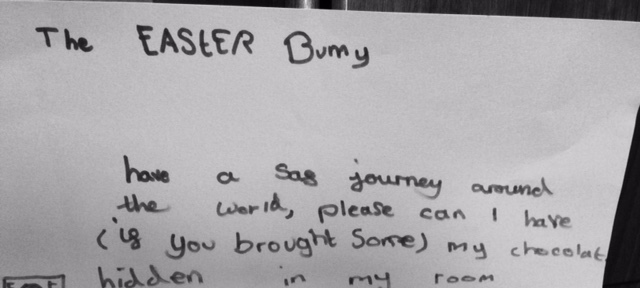 The EASTER Bumy
have a sas journey around
the world, please can I have
(is you brought some) my chocolat
hidden in my room